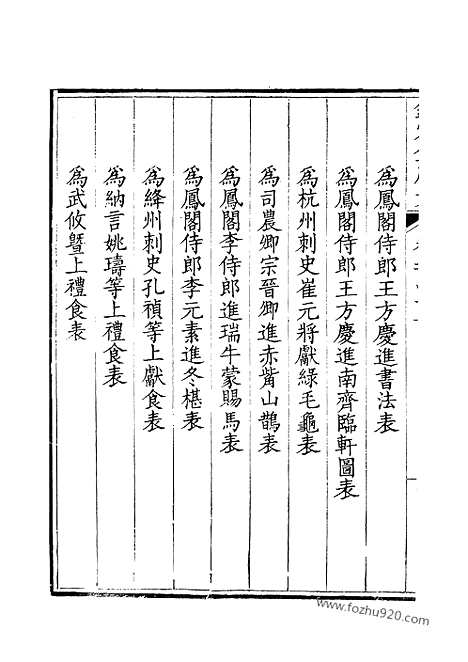 為鳳閣侍郎王方慶進書法表
為鳳閣侍郎王方慶進南齊臨軒圖表
為杭州刺史崔元將獻綠毛龜表
為司農卿宗晉卿進赤觜山鵲表
為鳳閣李侍郎進瑞牛蒙賜馬表
為鳳閣侍郎李元素進冬椹表
為絳州刺史孔禎等上獻食表
為納言姚璹等上禮食表
為武攸暨上禮食表
www.fozhu920.com